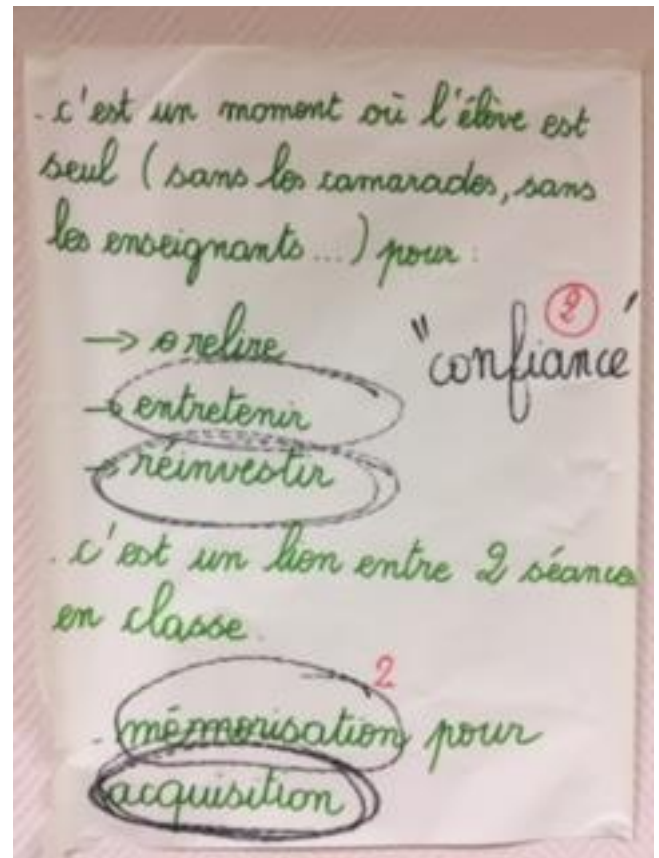 . c'est un moment où l'élève est
seul (sans les camarades, sans
les enseignants...) pour :
→ relire
"confiance" ②
→ entretenir
→ réinvestir
. c'est un lien entre 2 séances
en classe.
. mémorisation pour
2
acquisition